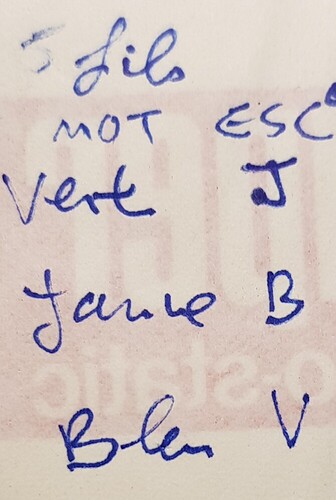 5 fils
MOT ESC
Vert J
Jaune B
Bleu V